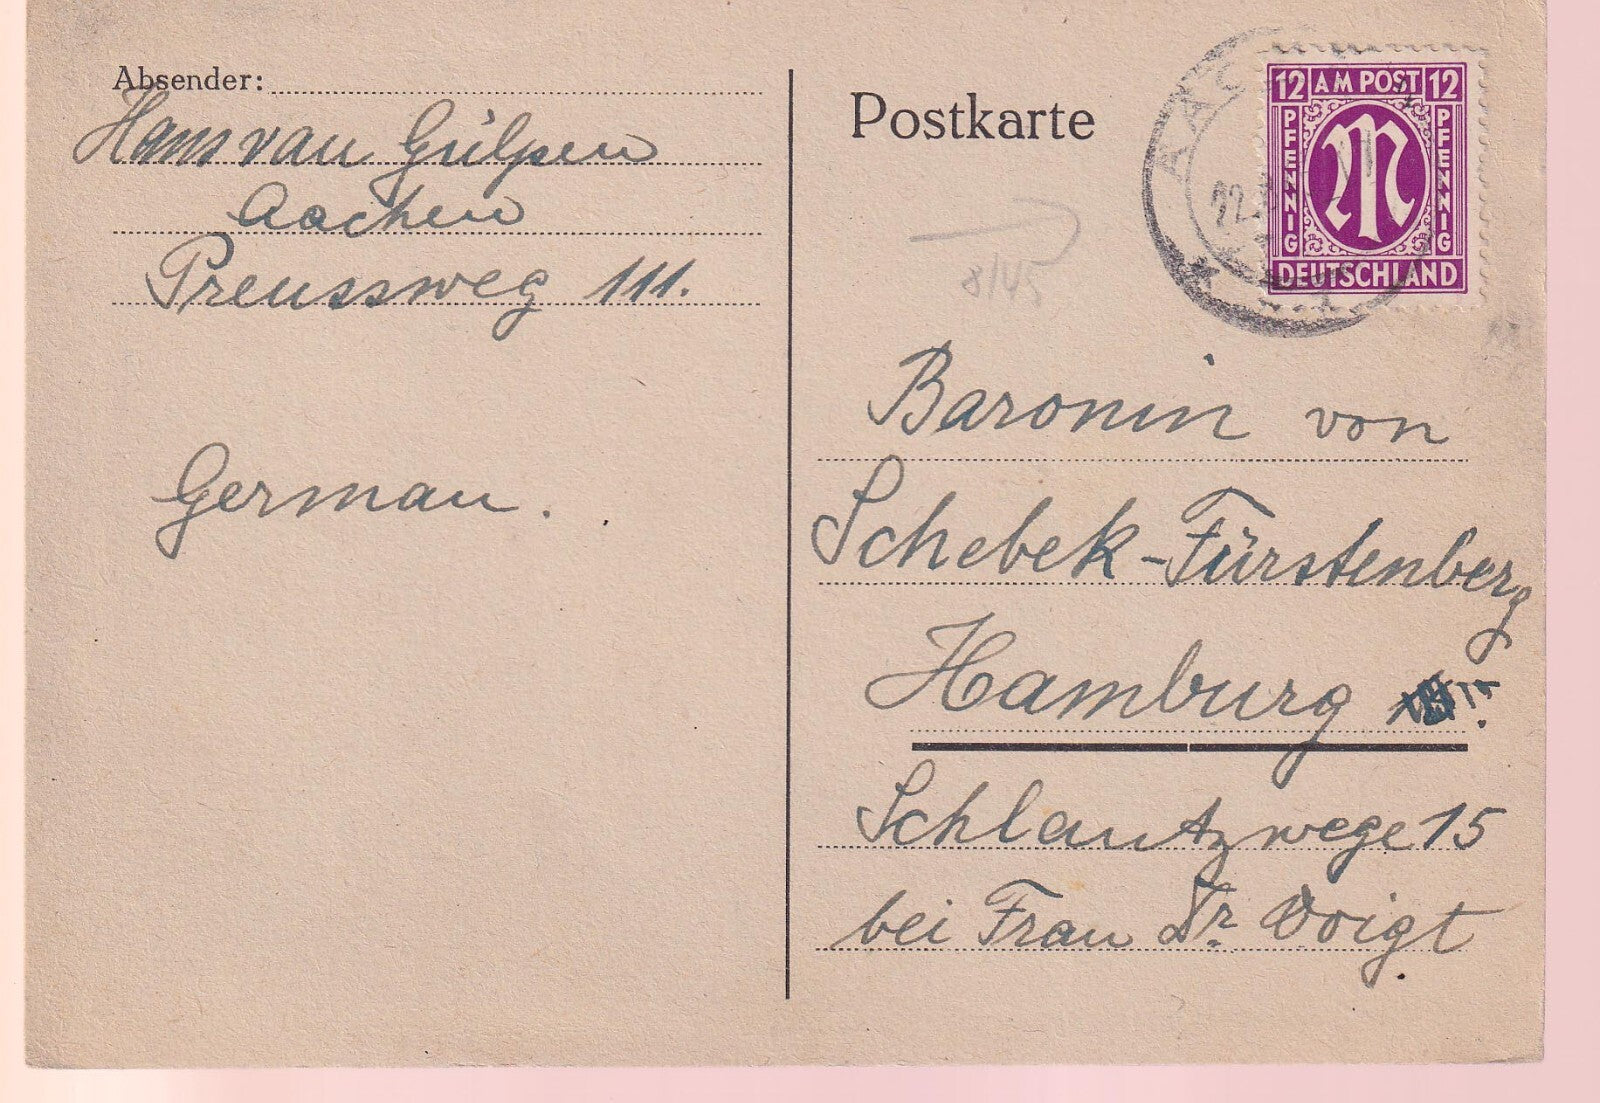 Absender:
Hans van Gülpen
Aachen
Preussweg 111.
German.
Postkarte
8/45
AAC
22.
12 AM POST 12
PFENNIG
PFENNIG
M
DEUTSCHLAND
Baronin von
Schebek-Fürstenberg
Hamburg
Schlautzwege 15
bei Frau Dr. Voigt